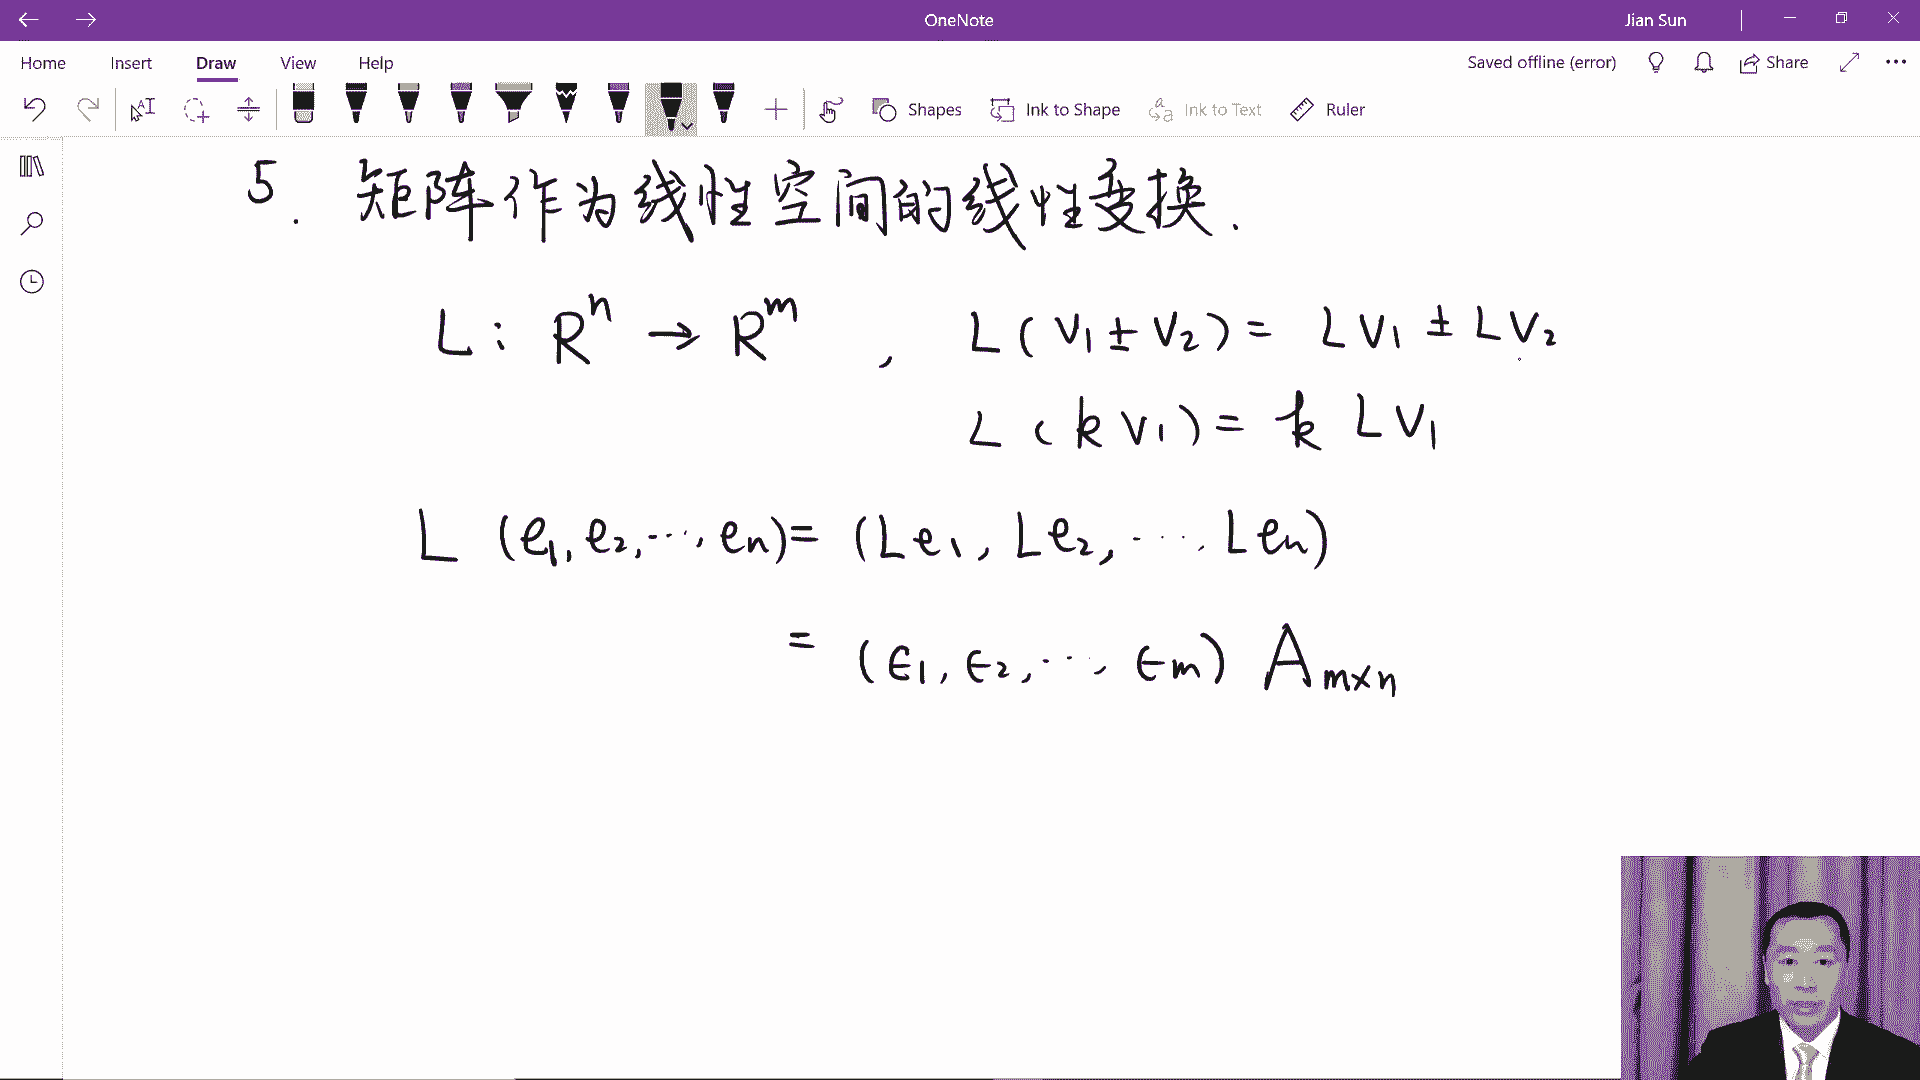 OneNote
Jian Sun
Home Insert Draw View Help
Saved offline (error) Share
Shapes Ink to Shape Ink to Text Ruler
5. 矩阵作为线性空间的线性变换.
L: Rⁿ → Rᵐ , L(v₁ ± v₂) = Lv₁ ± Lv₂
L(kv₁) = k Lv₁
L (e₁, e₂, ···, eₙ) = (Le₁, Le₂, ···, Leₙ)
= (ϵ₁, ϵ₂, ···, ϵₘ) Aₘₓₙ